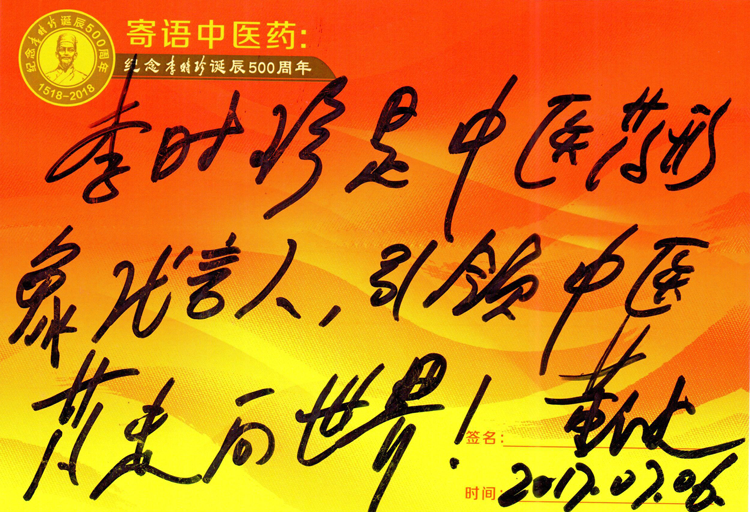 纪念李时珍诞辰500周年
1518-2018
寄语中医药:
纪念李时珍诞辰500周年
李时珍是中医药形
象代言人,引领中医
药走向世界!
签名:
时间: 2017.07.06.